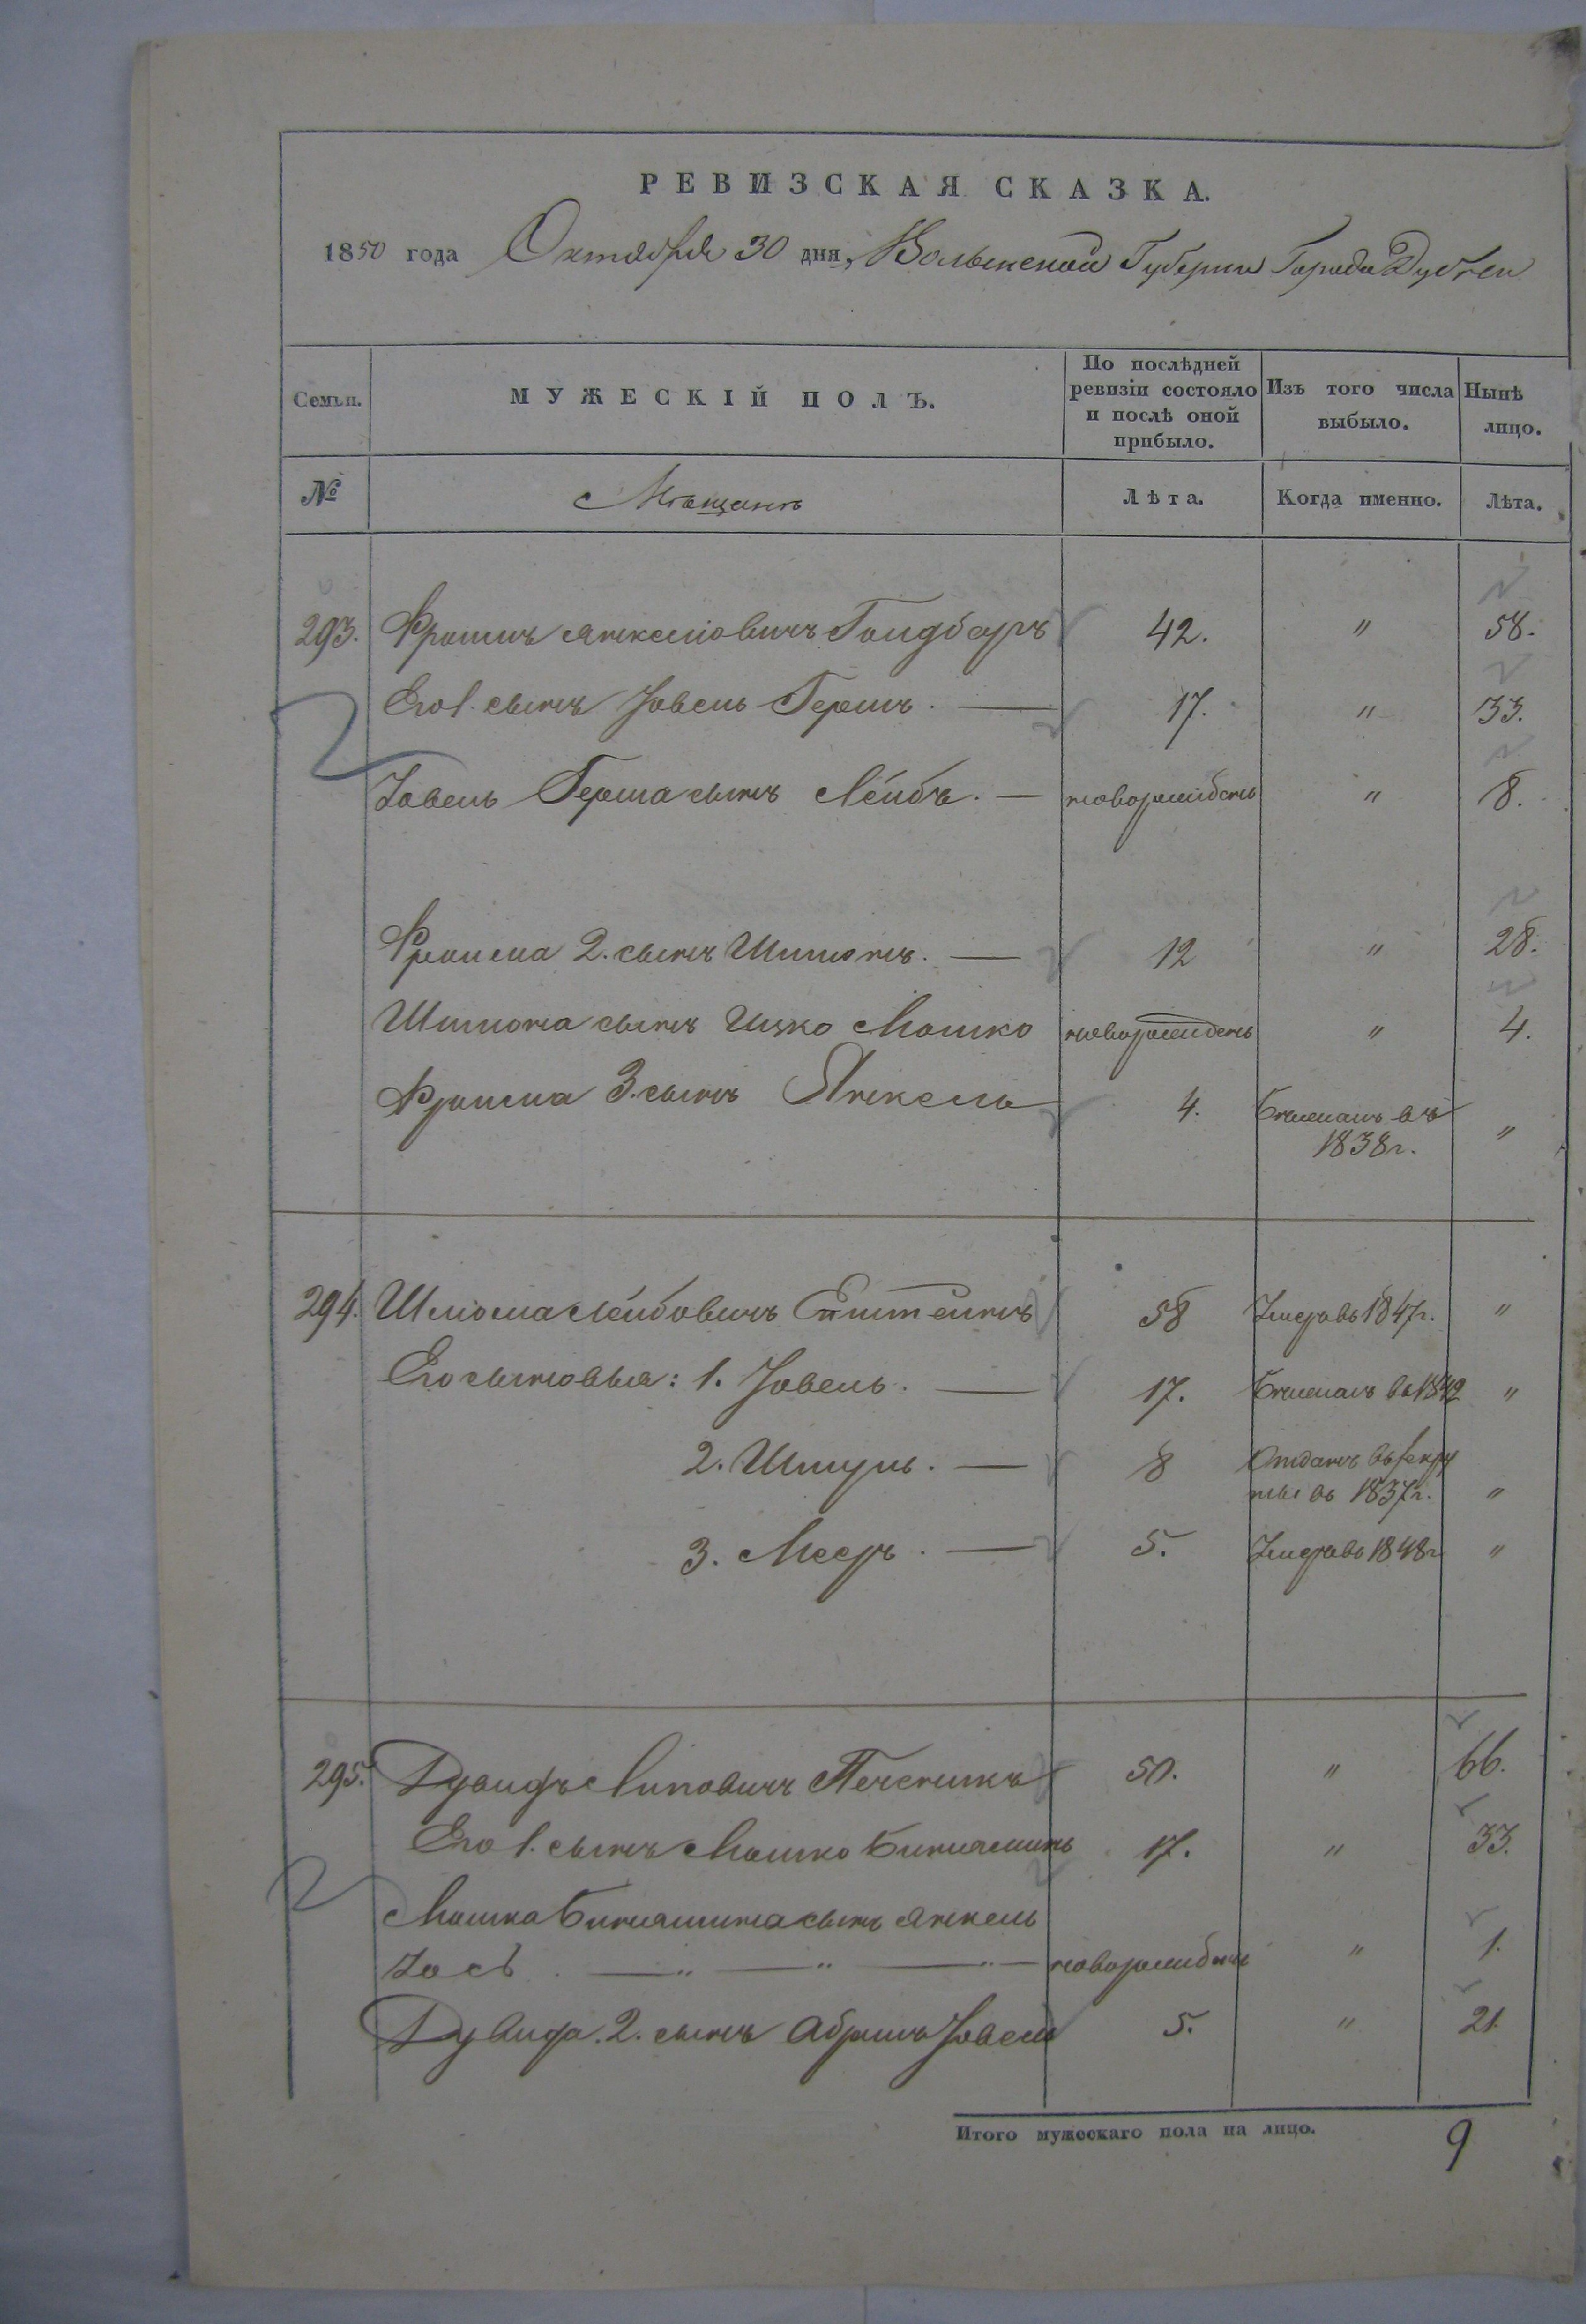 РЕВИЗСКАЯ СКАЗКА.
1850 года Октября 30 дня, Волынской Губернии Города Дубна
Семьи. МУЖЕСКІЙ ПОЛЪ. По послѣдней ревизіи состояло и послѣ оной прибыло. Изъ того числа выбыло. Нынѣ лицо.
№ Мѣщанъ Лѣта. Когда именно. Лѣта.
293. Фроимъ Янкеліовичъ Голдбаръ 42. " 58.
Его 1. сынъ Іовель Гершъ. — 17. " 33.
Іовель Герша сынъ Лейбъ. — новорожденъ " 8.
Фроима 2. сынъ Шимонъ. — 12 " 28.
Шимона сынъ Ицко Мошко новорожденъ " 4.
Фроима 3. сынъ Янкель 4. Бѣжалъ въ 1838г. "
294. Шліома Лейбовичъ Епштейнъ 58 Умеръ въ 1847г. "
Его сыновья: 1. Іовель. — 17. Бѣжалъ въ 1842 "
2. Шмуль. — 8 Отданъ въ рекру
ты въ 1837г. "
3. Мееръ. — 5. Умеръ въ 1848г "
295. Дувидъ Липовичъ Печеникъ 50. " 66.
Его 1. сынъ Мошко Биніаминъ 17. " 33.
Мошка Биніамина сынъ Янкель
Іосъ — " — " — " — новорожденъ " 1.
Дувида. 2. сынъ Абрамъ Іовель 5. " 21.
Итого мужескаго пола на лицо. 9